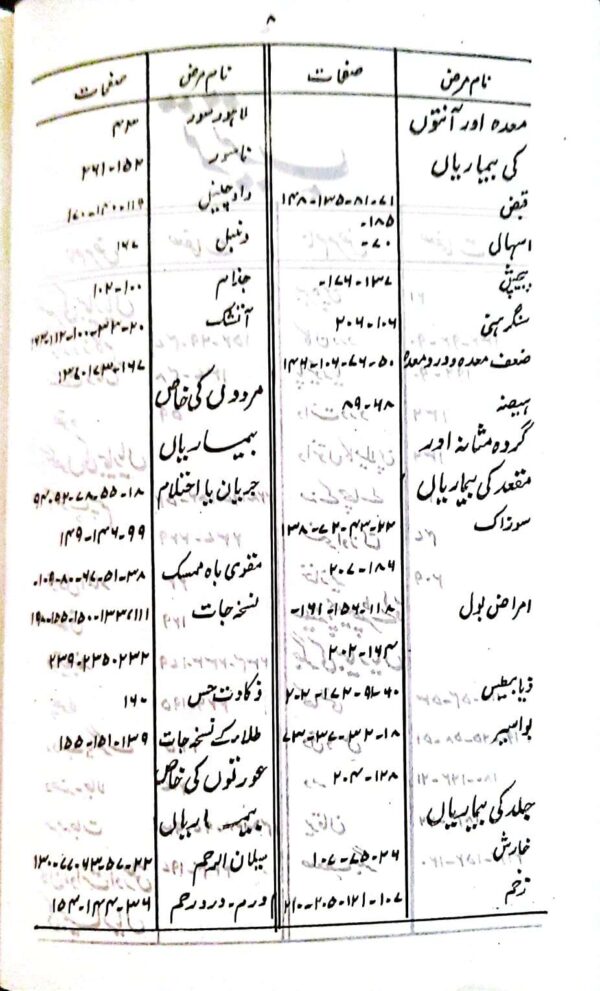 ۸
نام مرض صفحات
معدہ اور آنتوں
کی بیماریاں
قبض ۷۱-۸۱-۱۳۵-۱۴۸
۱۸۵-
اسہال ۷۰-
پیچش ۱۳۷-۱۷۶-
سنگرہنی ۱۰۶-۲۰۶
ضعف معدہ و درد معدہ ۵۰-۷۶-۱۰۶-۱۴۶
ہیضہ ۶۸-۸۹
گردہ مثانہ اور
مقعد کی بیماریاں
سوزاک ۲۲-۴۳-۷۲-۱۳۸
۱۸۴-۲۰۷
امراض بول ۱۱۸-۱۵۶-۱۶۱-
۱۶۴-۲۰۲
ذیابیطیس ۶۰-۹۱-۱۷۲-۲۰۲
بواسیر ۱۸-۳۲-۳۷-۷۳
۱۲۸-۲۰۴
جلد کی بیماریاں
خارش ۲۶-۷۵-۱۰۷
زخم ۱۰۷-۱۲۱-۲۰۵-۲۱۰
نام مرض صفحات
لاہور سور ۴۳
ناسور ۱۵۲-۲۶۱
داد چنبل ۱۱۹-۱۴۰-۱۷۰
دنبل ۱۶۷
جذام ۱۰۰-۱۰۲
آتشک ۲۰-۳۳-۱۰۰-۱۱۲-۱۶۳
۱۶۷-۱۷۳-۱۳۶
مردوں کی خاص
بیماریاں
جریان یا احتلام ۱۸-۵۵-۷۸-۹۲-۹۴
۹۹-۱۴۶-۱۴۹
مقوی باہ ممسک ۳۸-۵۱-۶۷-۸۰-۱۰۹
نسخہ جات ۱۱۱-۱۳۳-۱۵۰-۱۵۵-۱۹۸
۲۳۲-۲۳۵-۲۳۹
ذکاوت حس ۱۶۰
طلاء کے نسخہ جات ۱۳۹-۱۵۱-۱۵۵
عورتوں کی خاص
بیماریاں
سیلان الرحم ۲۲-۵۷-۶۳-۷۷-۱۳۰
ورم - درد رحم ۳۶-۱۴۴-۱۵۴